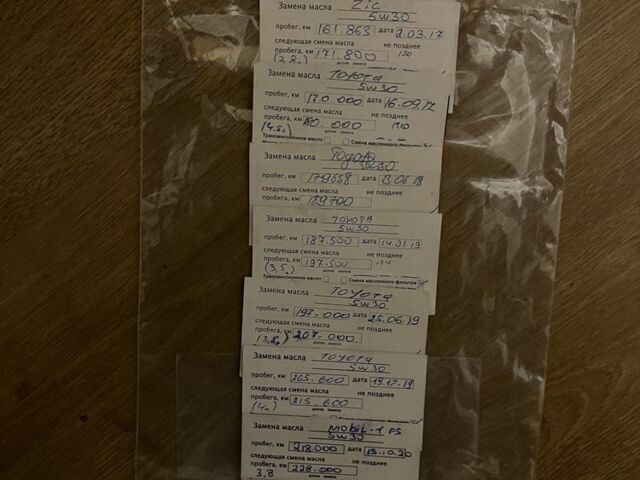 Замена масла ZIC
5w30
пробег, км 161.863 дата 2.03.17
следующая смена масла не позднее
пробега, км 171.800
Замена масла TOYOTA
5w30
пробег, км 170.000 дата 16.09.17
следующая смена масла не позднее
пробега, км 180.000
Трансмиссионное масло Смена масляного фильтра
Замена масла Toyota
5w30
пробег, км 179658 дата 13.06.18
следующая смена масла не позднее
пробега, км 189700
Замена масла TOYOTA
5w30
пробег, км 187.500 дата 14.01.19
следующая смена масла не позднее
пробега, км 197.500
(3,5л)
Трансмиссионное масло Смена масляного фильтра
Замена масла TOYOTA
5w30
пробег, км 197.000 дата 25.06.19
следующая смена масла не позднее
пробега, км 207.000
Замена масла TOYOTA
5w30
пробег, км 205.600 дата 17.12.19
следующая смена масла не позднее
пробега, км 215.600
(4л)
Замена масла Mobil-1 FS
5w30
пробег, км 218.000 дата 15.10.20
следующая смена масла не позднее
пробега, км 228.000
3,8